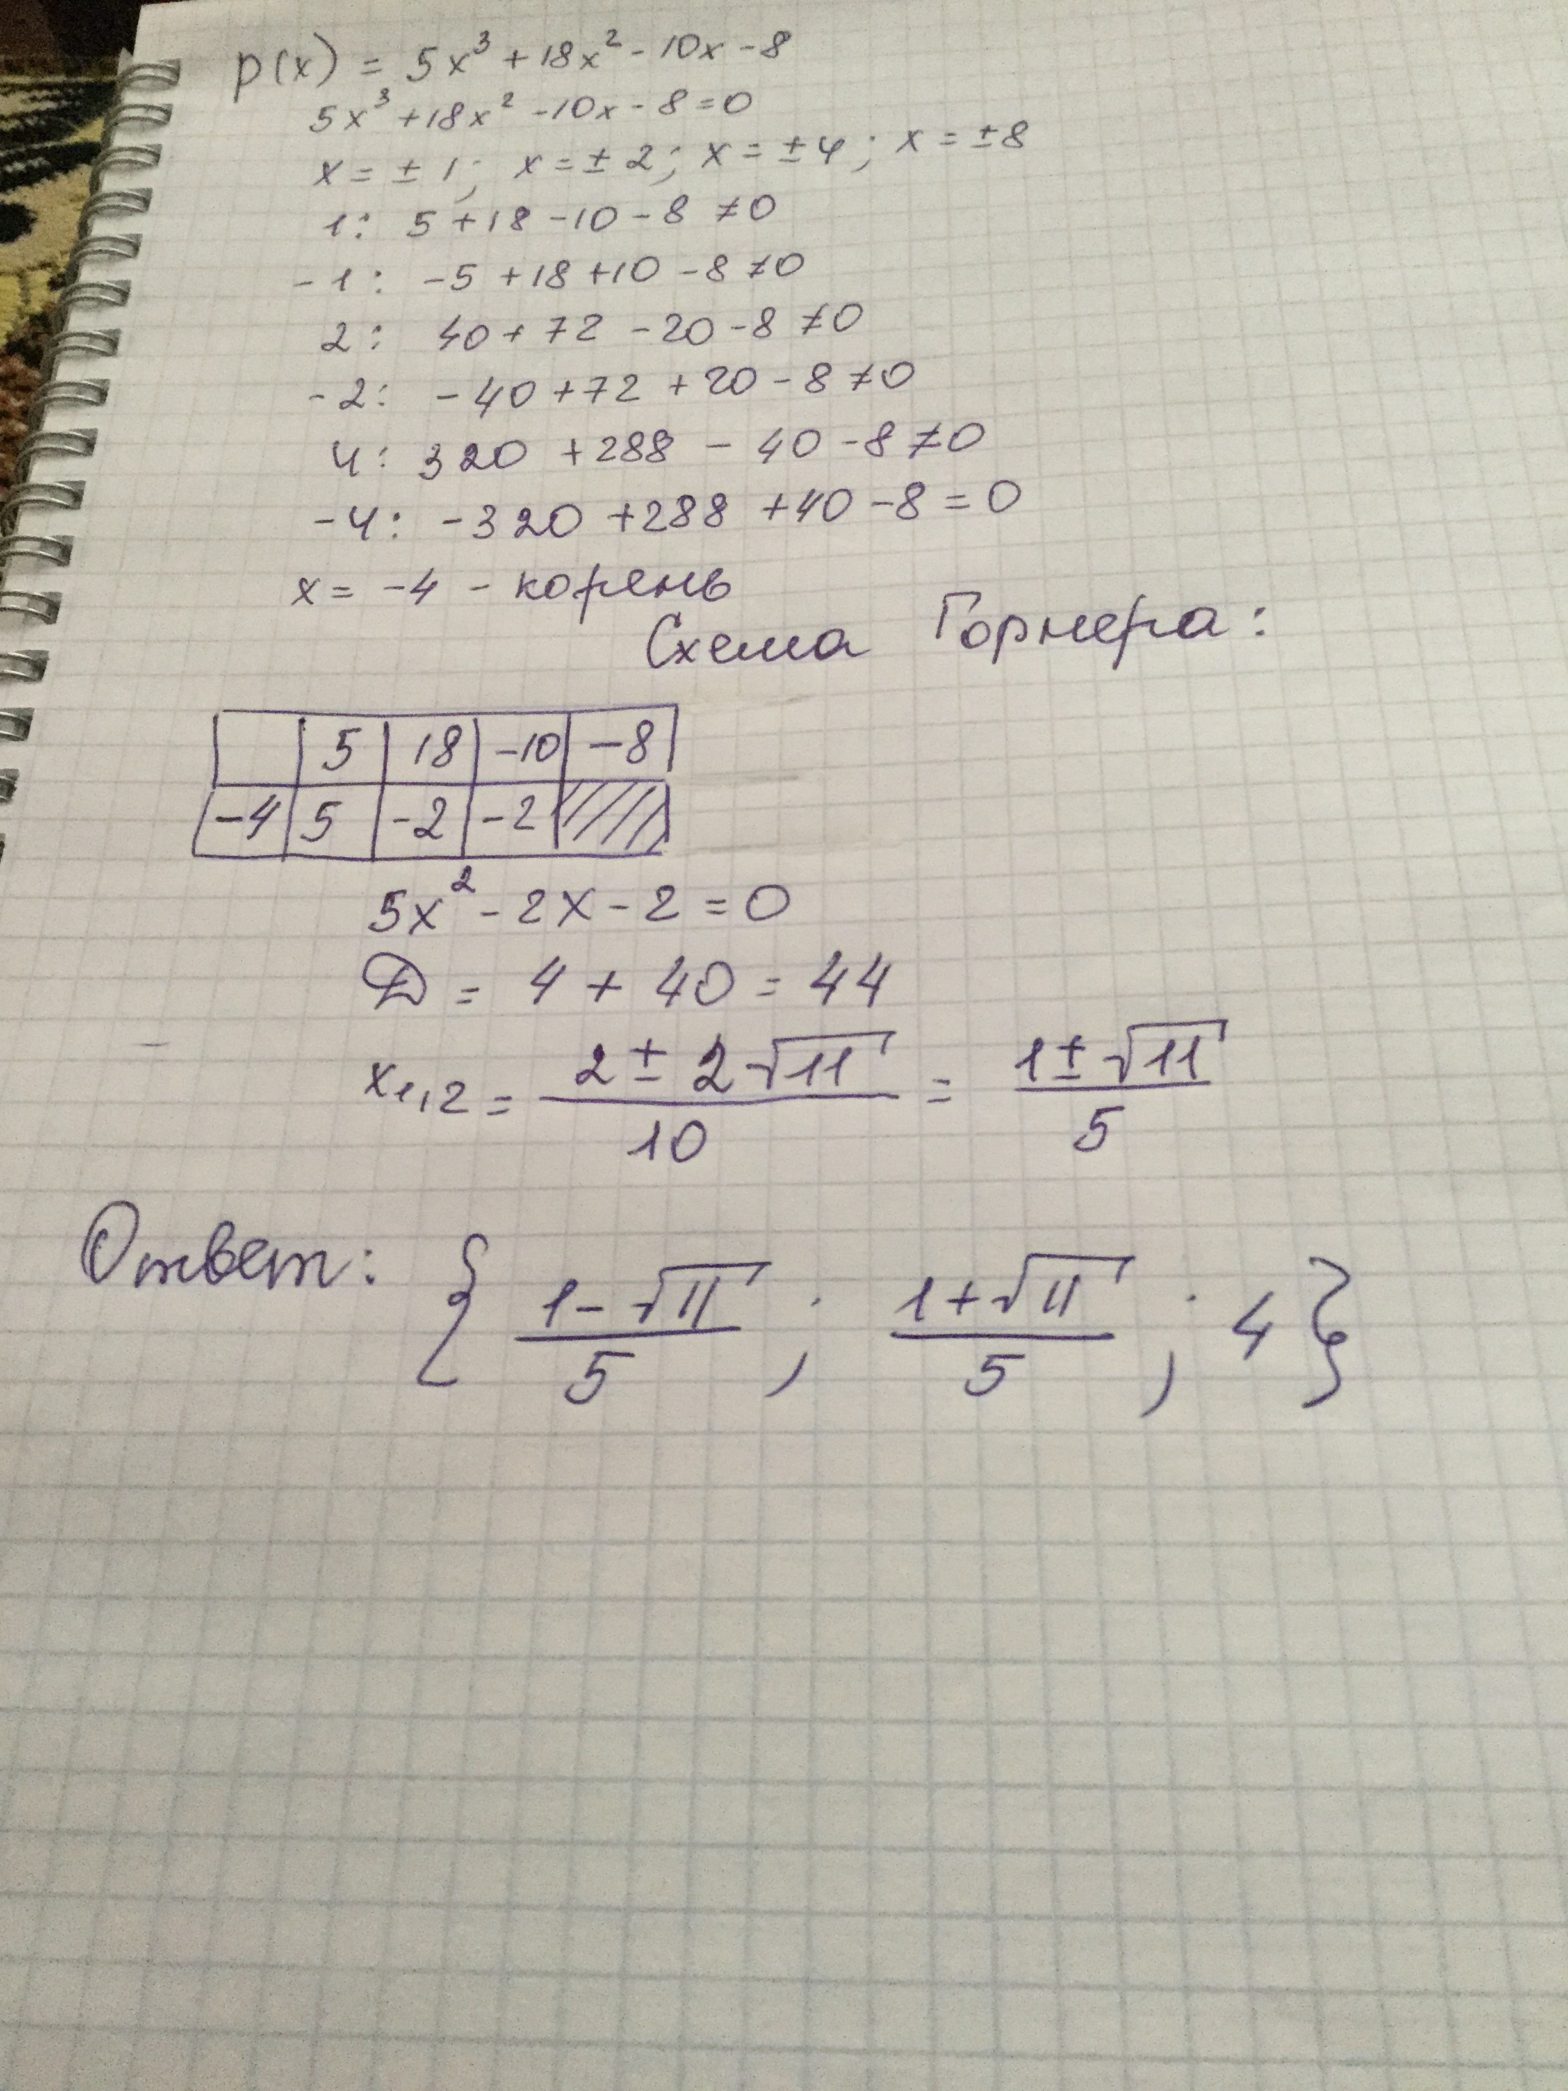 p(x) = 5x³ + 18x² - 10x - 8
5x³ + 18x² - 10x - 8 = 0
x = ± 1; x = ± 2; x = ± 4; x = ± 8
1: 5 + 18 - 10 - 8 ≠ 0
- 1: - 5 + 18 + 10 - 8 ≠ 0
2: 40 + 72 - 20 - 8 ≠ 0
- 2: - 40 + 72 + 20 - 8 ≠ 0
4: 320 + 288 - 40 - 8 ≠ 0
- 4: - 320 + 288 + 40 - 8 = 0
x = -4 - корень
Схема Горнера:
5 18 -10 -8
-4 5 -2 -2
5x² - 2x - 2 = 0
D = 4 + 40 = 44
x₁,₂ = (2 ± 2√11)/10 = (1 ± √11)/5
Ответ: { (1 - √11)/5 ; (1 + √11)/5 ; 4 }